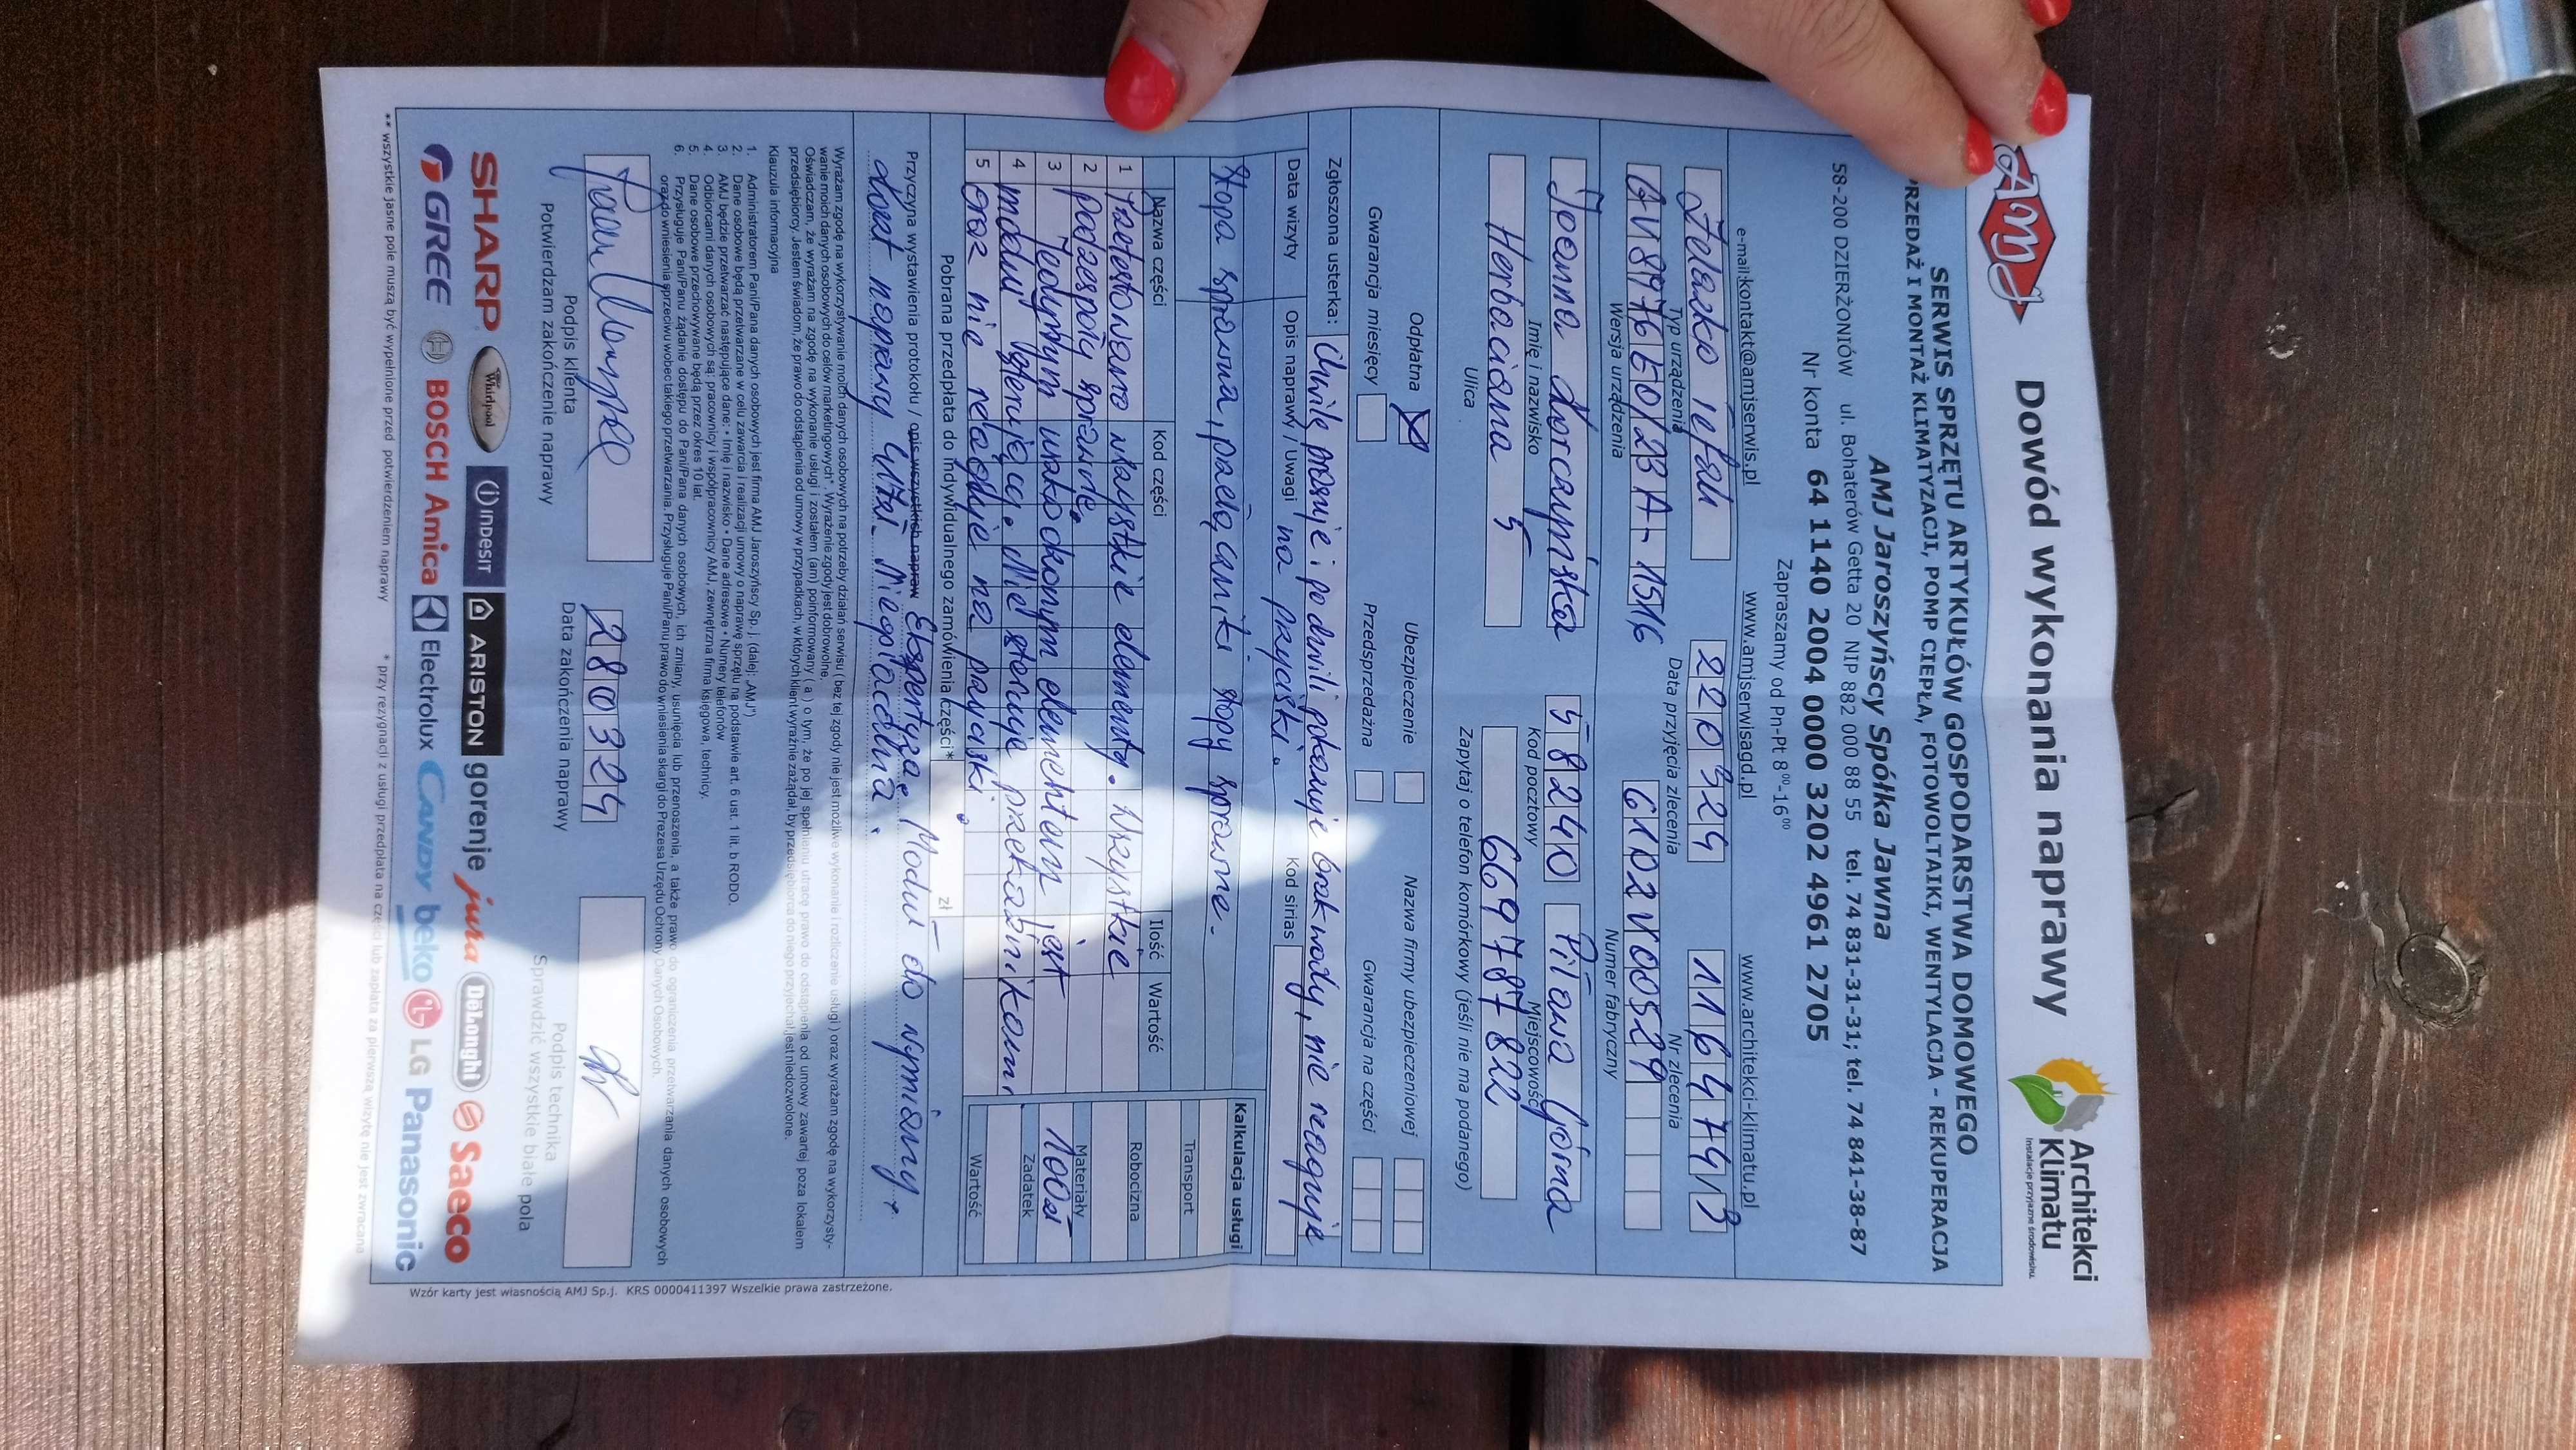 AMJ
Dowód wykonania naprawy
Architekci
Klimatu
Instalacje przyjazne środowisku.
SERWIS SPRZĘTU ARTYKUŁÓW GOSPODARSTWA DOMOWEGO
PRZEDAŻ I MONTAŻ KLIMATYZACJI, POMP CIEPŁA, FOTOWOLTAIKI, WENTYLACJA - REKUPERACJA
AMJ Jaroszyńscy Spółka Jawna
58-200 DZIERŻONIÓW ul. Bohaterów Getta 20 NIP 882 000 88 55 tel. 74 831-31-31; tel. 74 841-38-87
Nr konta 64 1140 2004 0000 3202 4961 2705
Zapraszamy od Pn-Pt 8⁰⁰-16⁰⁰
e-mail:kontakt@amjserwis.pl www.amjserwisagd.pl www.architekci-klimatu.pl
Żelazko Tefal 220324 116479/3
Typ urządzenia Data przyjęcia zlecenia Nr zlecenia
GV8976E0/23A-1516 6102V00529
Wersja urządzenia Numer fabryczny
Joanna 58240 Piława Górna
Imię i nazwisko Kod pocztowy Miejscowość
Herbaciana 5 669787822
Ulica Zapytaj o telefon komórkowy (jeśli nie ma podanego)
Odpłatna X Ubezpieczenie Nazwa firmy ubezpieczeniowej
Gwarancja miesięcy Przedsprzedażna Gwarancja na części
Zgłoszona usterka: Chwilę pracuje i po chwili pokazuje brak wody, nie reaguje
Data wizyty Opis naprawy / Uwagi na przyciski. Kod sirias
Stopa sprawna, parę, czujniki stopy sprawne.
Kalkulacja usługi
Nazwa części Kod części Ilość Wartość
Transport
1 Przetestowano wszystkie elementy. Wszystkie
Robocizna
2 podzespoły sprawne.
Materiały
3 Jedynym uszkodzonym elementem jest 100zł
Zadatek
4 moduł sterujący. Nie steruje przekaźnikami
Wartość
5 oraz nie reaguje na przyciski.
Pobrana przedpłata do indywidualnego zamówienia części* zł
Przyczyna wystawienia protokołu / opis wszystkich napraw Ekspertyza. Moduł do wymiany.
Koszt naprawy 477zł. Nieopłacalna.
Wyrażam zgodę na wykorzystywanie moich danych osobowych na potrzeby działań serwisu ( bez tej zgody nie jest możliwe wykonanie i rozliczenie usługi ) oraz wyrażam zgodę na wykorzysty-
wanie moich danych osobowych do celów marketingowych*. Wyrażenie zgody jest dobrowolne.
Oświadczam, że wyrażam na zgodę na wykonanie usługi i zostałem (am) poinformowany ( a ) o tym, że po jej spełnieniu utracę prawo do odstąpienia od umowy zawartej poza lokalem
przedsiębiorcy. Jestem świadom, że prawo do odstąpienia od umowy w przypadkach, w których klient wyraźnie zażądał, by przedsiębiorca do niego przyjechał, jest niedozwolone.
Klauzula informacyjna
1. Administratorem Pani/Pana danych osobowych jest firma AMJ Jaroszyńscy Sp. j. (dalej: „AMJ")
2. Dane osobowe będą przetwarzane w celu zawarcia i realizacji umowy o naprawę sprzętu na podstawie art. 6 ust. 1 lit. b RODO.
3. AMJ będzie przetwarzać następujące dane: • Imię i nazwisko • Dane adresowe • Numery telefonów
4. Odbiorcami danych osobowych są: pracownicy i współpracownicy AMJ, zewnętrzna firma księgowa, technicy.
5. Dane osobowe przechowywane będą przez okres 10 lat.
6. Przysługuje Pani/Panu żądanie dostępu do Pani/Pana danych osobowych, ich zmiany, usunięcia lub przenoszenia, a także prawo do ograniczenia przetwarzania danych osobowych
oraz do wniesienia sprzeciwu wobec takiego przetwarzania. Przysługuje Pani/Panu prawo do wniesienia skargi do Prezesa Urzędu Ochrony Danych Osobowych.
280324
Podpis klienta Data zakończenia naprawy Podpis technika
Potwierdzam zakończenie naprawy Sprawdzić wszystkie białe pola
SHARP Whirlpool INDESIT ARISTON gorenje jura DeLonghi Saeco
GREE BOSCH Amica Electrolux CANDY beko LG Panasonic
** wszystkie jasne pole muszą być wypełnione przed potwierdzeniem naprawy * przy rezygnacji z usługi przedpłata na części lub zapłata za pierwszą wizytę nie jest zwracana
Wzór karty jest własnością AMJ Sp.j. KRS 0000411397 Wszelkie prawa zastrzeżone.